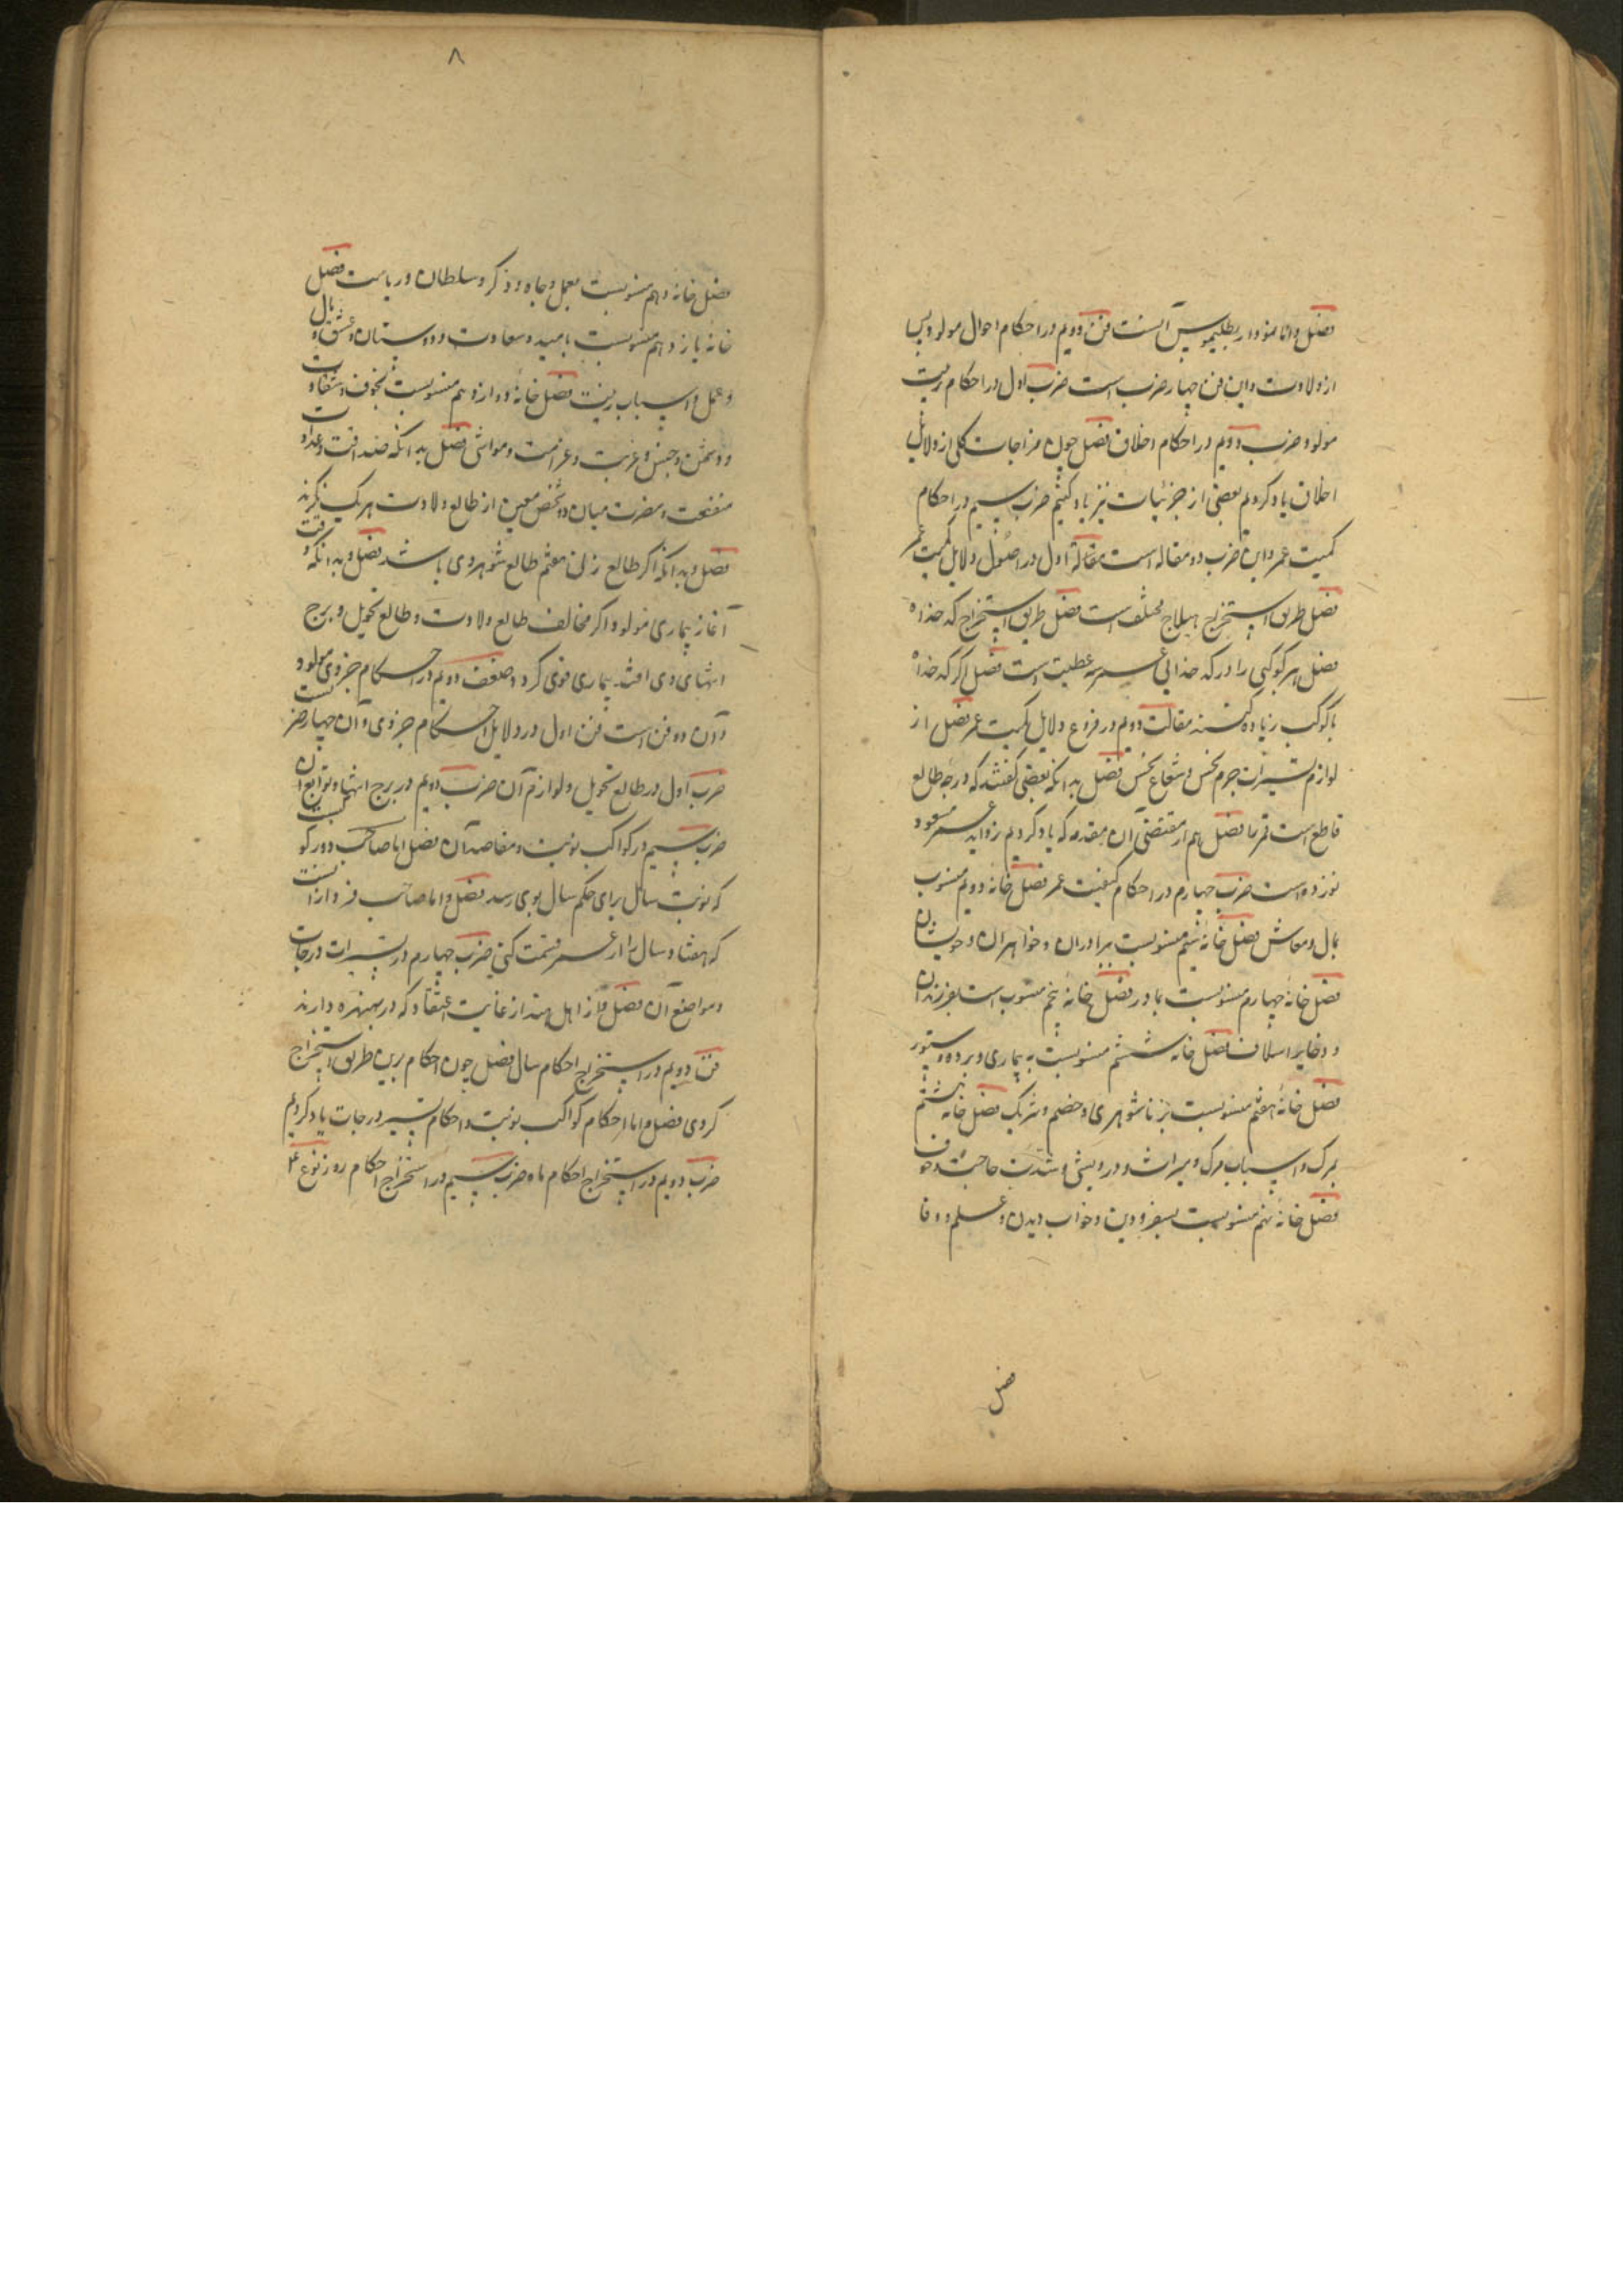 فصل و اما نمودار بطلیموس آنست فن دویم در احکام احوال مولود پس
از ولادت و این فن چهار ضرب است ضرب اول در احکام تربیت
مولود ضرب دویم در احکام اخلاق فصل چون مزاجات کلی از دلایل
اخلاق یاد کردیم بعضی از جزئیات نیز یاد کنیم ضرب سیم در احکام
کمیت عمر و این ضرب دو مقاله است مقالة اول در اصول دلایل کمیت عمر
فصل طریق استخراج هیلاج مختلف است فصل طریق استخراج کدخداه
فصل هر کوکبی را در کدخدایی عمر سه عطیت است فصل اگر کدخداه
با کوکب زیاده کننده مقالت دویم در فروع دلایل کمیت عمر فصل از
لوازم تسییرات جرم نحس و شعاع نحس فصل بدانکه بعضی گفتند که درجه طالع
قاطع است فصل هم از مقتضی آن مقدمه که یاد کردیم زواید عمر
ضرب چهارم در احکام کیفیت عمر فصل خانه دویم منسوب
بمال و معاش فصل خانه سیم منسوبست ببرادران و خواهران و خویشان
فصل خانه چهارم منسوبست بمادر فصل خانه پنجم منسوب است بفرزندان
و ذخایر اسلاف فصل خانه ششم منسوبست به بیماری و برده و ستور
فصل خانهٔ هفتم منسوبست بزناشوهری و خصم و شریک فصل خانه هشتم
بمرگ و اسباب مرگ و میراث و درویشی و شدت حاجت و خوف
فصل خانه نهم منسوبست بسفر و دین و خواب دیدن و علم و وفا
فصل
۸
فصل خانهٔ دهم منسوبست بعمل و جاه و ذکر و سلطان و ریاست فصل
خانه یازدهم منسوبست بامید و سعادت و دوستان و عشق و مال
و عمل و اسباب زینت فصل خانهٔ دوازدهم منسوبست بخوف و شقاوت
و دشمن و حبس و غربت و غرامت و مواشی فصل بدانکه صداقت و عداوت
منفعت و مضرت میان دو شخص معین از طالع ولادت هر یک نگرند
فصل و بدانکه اگر طالع زنی هفتم طالع شوهر وی باشد فصل و بدانکه وقت
آغاز بیماری مولود اگر مخالف طالع ولادت و طالع تحویل و برج
انتهای وی افتد بیماری قوی گردد صنف دویم در احکام جزوی مولود
و آن دو فن است فن اول در دلایل احکام جزوی و آن چهار ضربست
ضرب اول در طالع تحویل و لوازم آن ضرب دویم در برج انتها و توابع آن
ضرب سیم در کواکب نوبت و مقاصد آن فصل اما صاحب دور کوکبیست
که نوبت سال برای حکم سال بوی رسد فصل و اما صاحب فردار آنست
که هفتاد سال را از عمر قسمت کنی ضرب چهارم در تسییرات درجات
و مواضع آن فصل از اهل هند از غایت اعتقاد که در بهنره دارند
فن دویم در استخراج احکام سال فصل چون احکام برین طریق استخراج
کردی فصل و اما احکام کواکب نوبت و احکام تسییر درجات یاد کردیم
ضرب دویم در استخراج احکام ماه ضرب سیم در استخراج احکام روز نوع ۴